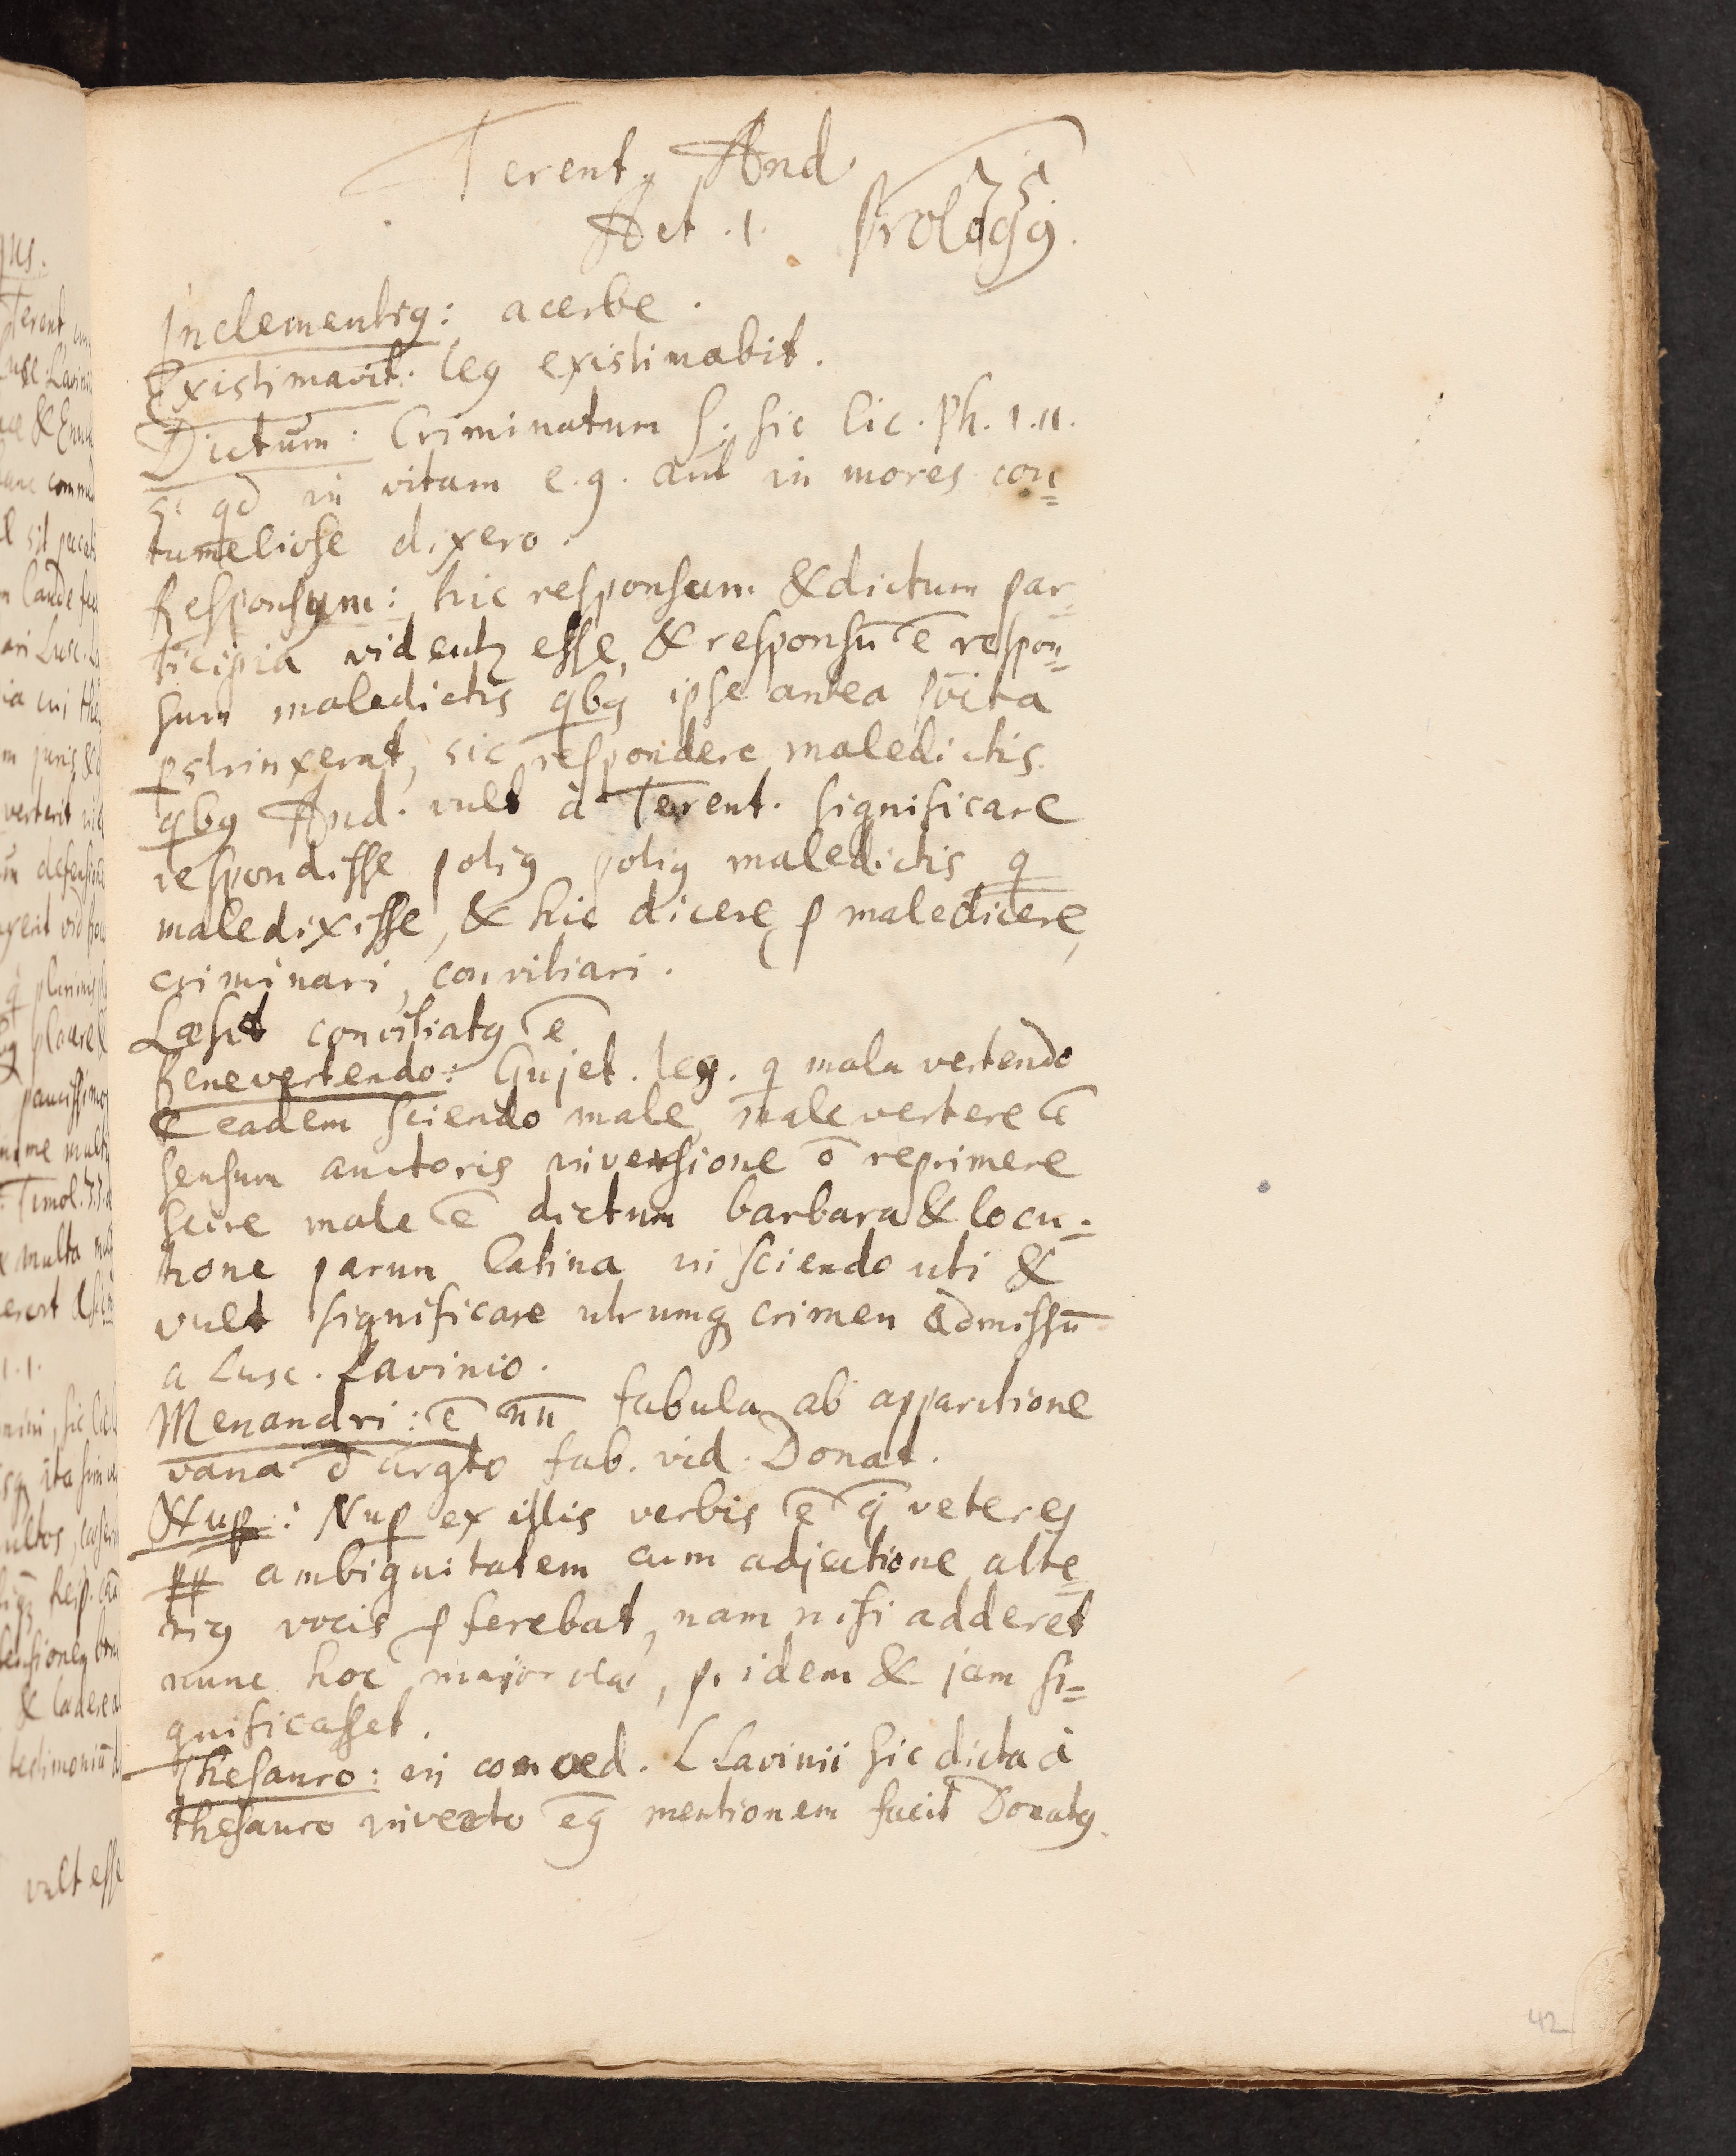 Terentꝯ And
Act. 1. Prologꝯ.
Inclementiꝯ: acerbe.
Existimavit: leg existimabit.
Dictum: Criminatum S. sic Cic. Ph. 1. 11.
s: qd in vitam e.g. aut in mores con=
tumeliose dixero.
Responsum: hic responsum & dictum par=
ticipia videntꝛ esse, & responsū ē respon=
sum maledictis qbꝯ ipse antea
pstrinxerat, sic respondere maledictis
qbꝯ And. vult à Terent. significare
respondisse potiꝯ potiꝯ maledictis q
maledixisse, & hic dicere p maledicere,
criminari, convitiari.
Læsit convitiatꝯ ē
Bene vertendo: Gujet. leg. q mala vertendo
& eadem sciendo male, male vertere ē
sensum auctoris in versione ō reprimere
scire male ē dictum barbara & locu=
tione parum latina in sciendo uti &
vult significare utrumqꝫ crimen admissū
a Lusc. Lavinio.
Menandri: ē nū fabula ab apparitione
vana ð argto fab. vid. Donat.
Nup: Nup ex istis verbis ē q veteres
ambiguitatem cum adjectione alte=
riꝯ vocis p ferebat, nam nisi adderet
nunc hoc, pridem & jam si=
gnificasset.
Thesauro: in comoed. L Lavinii sic dicta à
thesauro invecto eꝯ mentionem facit Donatꝯ.
42